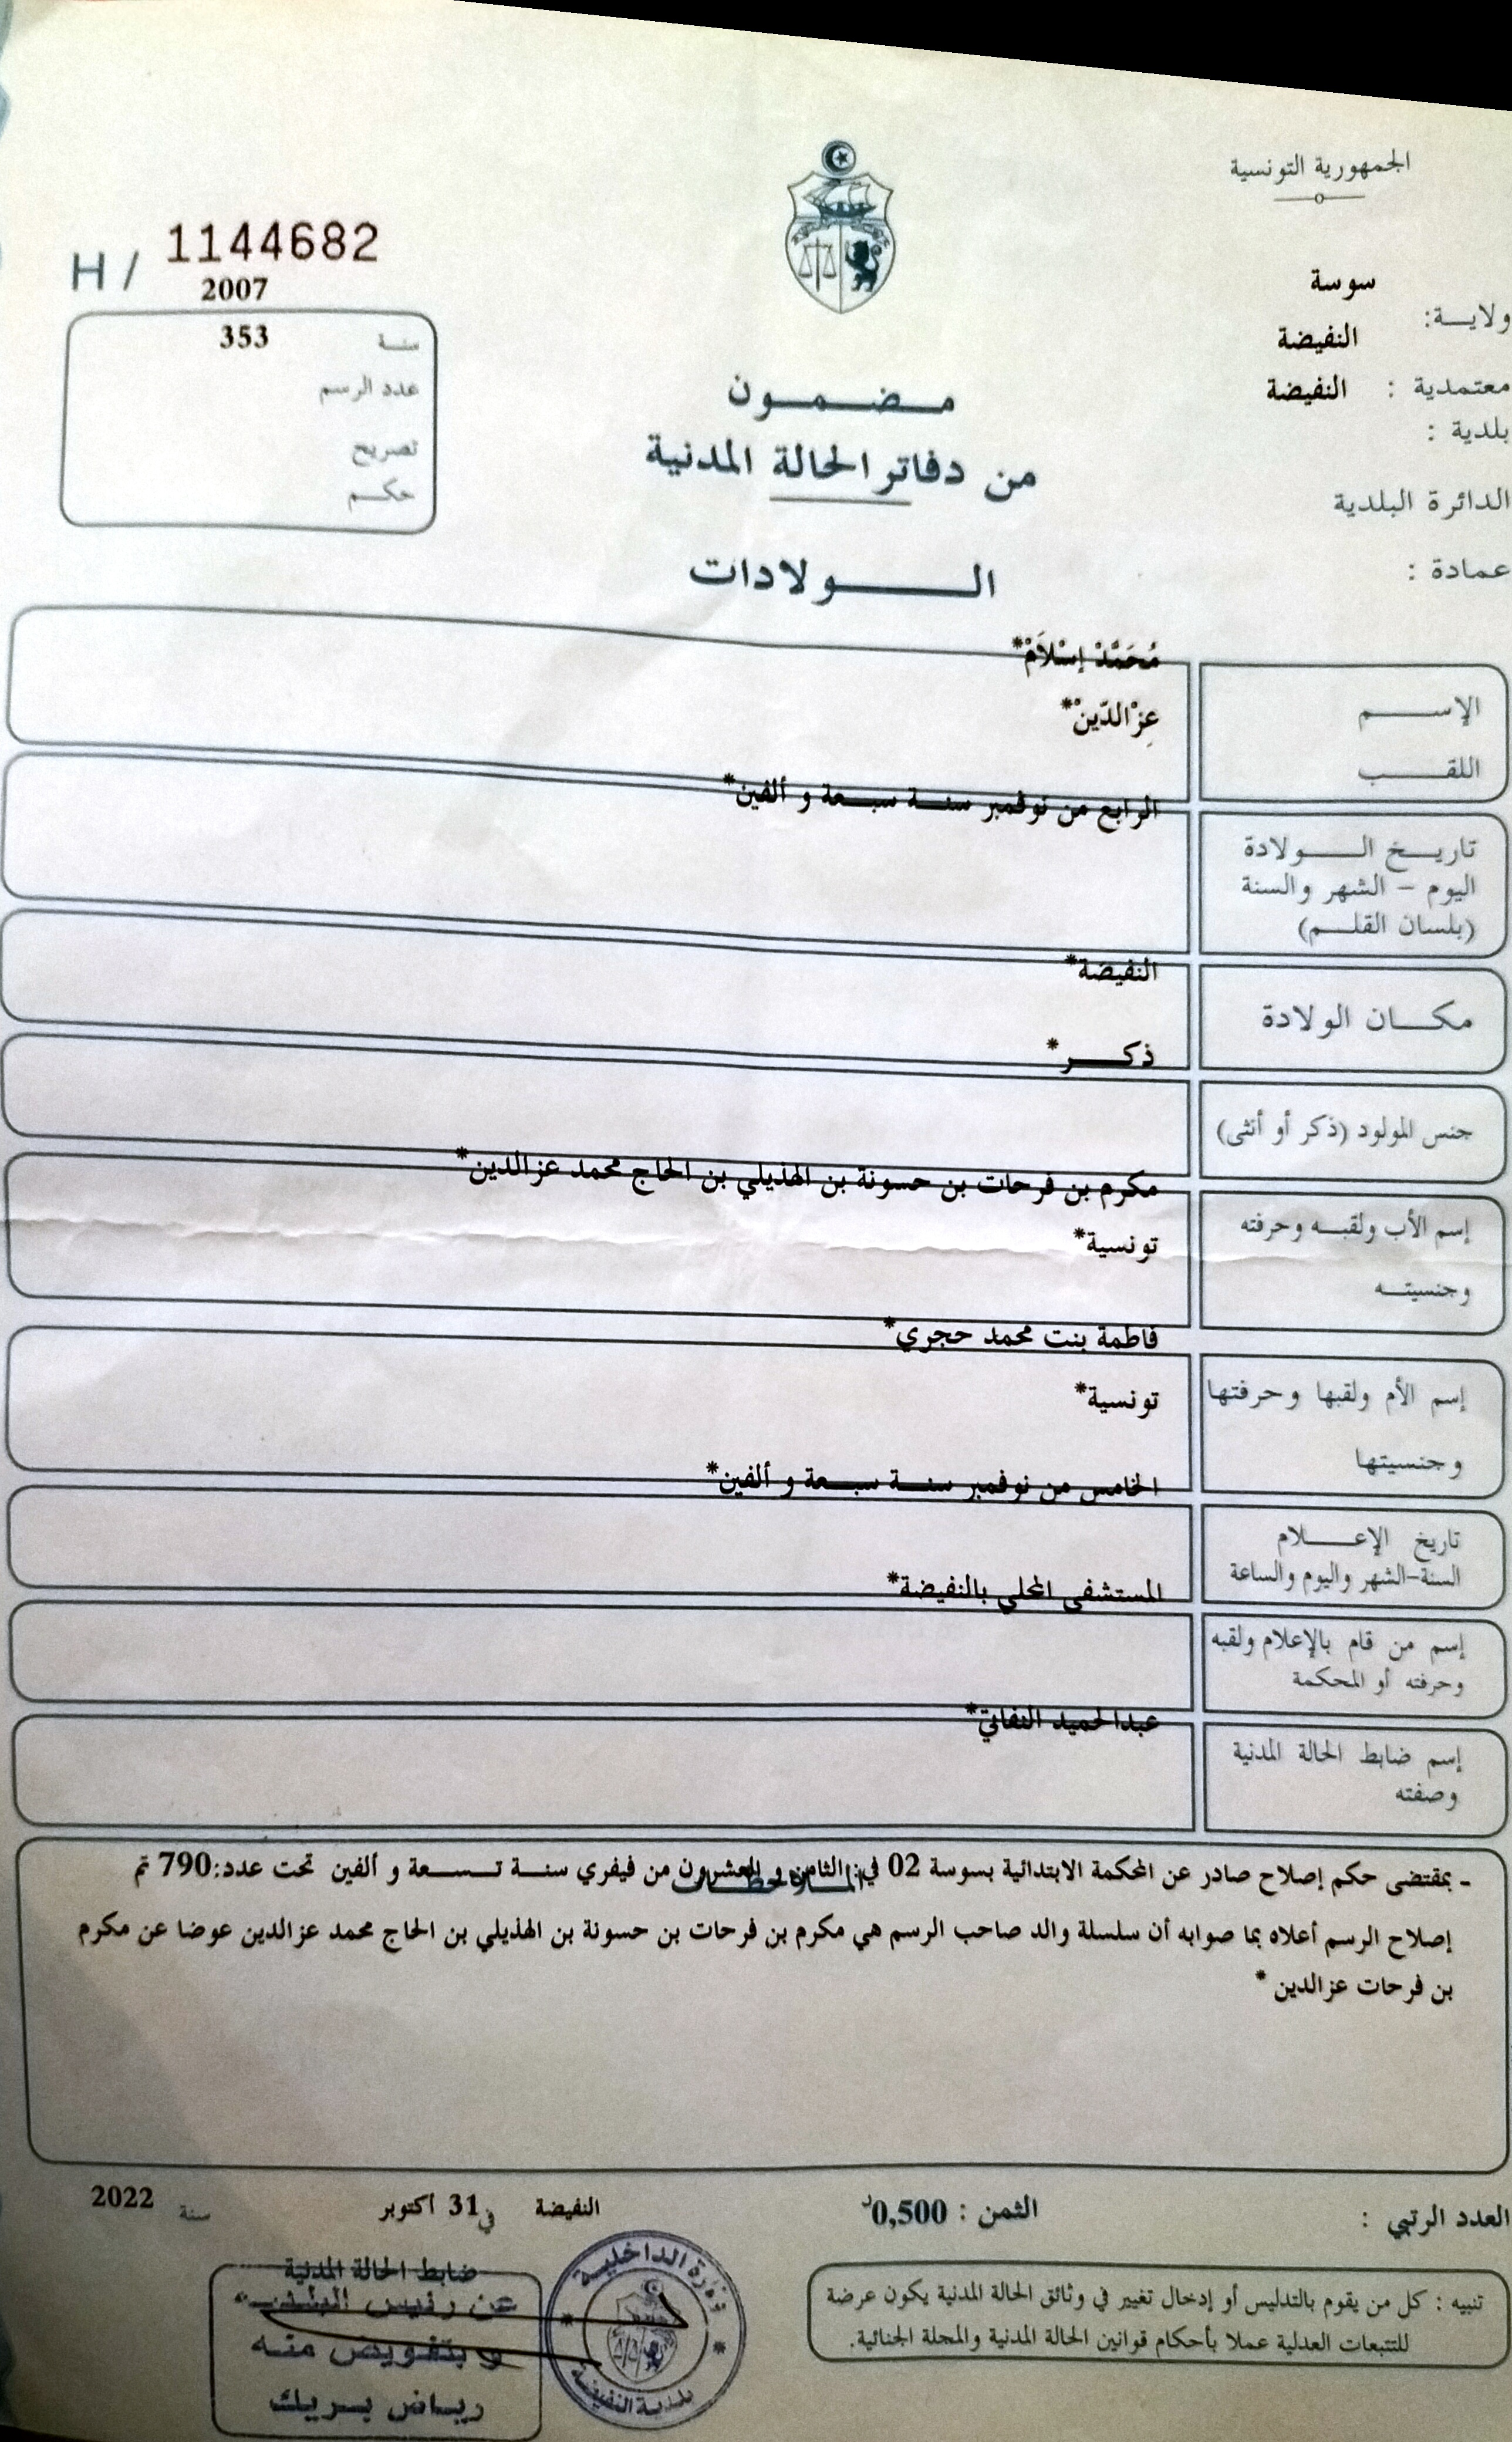 الجمهورية التونسية
H / 1144682
2007
سنة 353
عدد الرسم
تصريح
حكم
سوسة
ولاية:
النفيضة
معتمدية : النفيضة
بلدية :
الدائرة البلدية
عمادة :
مضمون
من دفاتر الحالة المدنية
الولادات
مُحَمَّدْ إِسْلاَمْ*
الإسم
عِزْالدّينْ*
اللقب
الرابع من نوفمبر سنة سبعة و ألفين*
تاريخ الولادة
اليوم - الشهر والسنة
(بلسان القلم)
النفيضة*
مكان الولادة
ذكر*
جنس المولود (ذكر أو أنثى)
مكرم بن فرحات بن حسونة بن الهذيلي بن الحاج محمد عزالدين*
إسم الأب ولقبه وحرفته
تونسية*
وجنسيته
فاطمة بنت محمد حجري*
إسم الأم ولقبها وحرفتها
تونسية*
وجنسيتها
الخامس من نوفمبر سنة سبعة و ألفين*
تاريخ الإعلام
السنة-الشهر واليوم والساعة
المستشفى المحلي بالنفيضة*
إسم من قام بالإعلام ولقبه
وحرفته أو المحكمة
عبدالحميد النفاتي*
إسم ضابط الحالة المدنية
وصفته
الملاحظات
- بمقتضى حكم إصلاح صادر عن المحكمة الابتدائية بسوسة 02 في: الثامن و العشرون من فيفري سنة تسعة و ألفين تحت عدد:790 تم
إصلاح الرسم أعلاه بما صوابه أن سلسلة والد صاحب الرسم هي مكرم بن فرحات بن حسونة بن الهذيلي بن الحاج محمد عزالدين عوضا عن مكرم
بن فرحات عزالدين *
العدد الرتبي :
الثمن : 0,500د
النفيضة في 31 أكتوبر سنة 2022
تنبيه : كل من يقوم بالتدليس أو إدخال تغيير في وثائق الحالة المدنية يكون عرضة
للتتبعات العدلية عملا بأحكام قوانين الحالة المدنية والمجلة الجنائية.
ضابط الحالة المدنية
عن رئيس البلدية
و بتفويض منه
رياض بريك
وزارة الداخلية
بلدية النفيضة